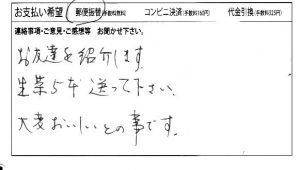 お支払い希望 郵便振替(手数料無料) コンビニ決済(手数料160円) 代金引換(手数料325円)
連絡事項・ご意見・ご感想等 お聞かせ下さい。
お友達を紹介します。
生葉5本送って下さい。
大変おいしいとの事です。